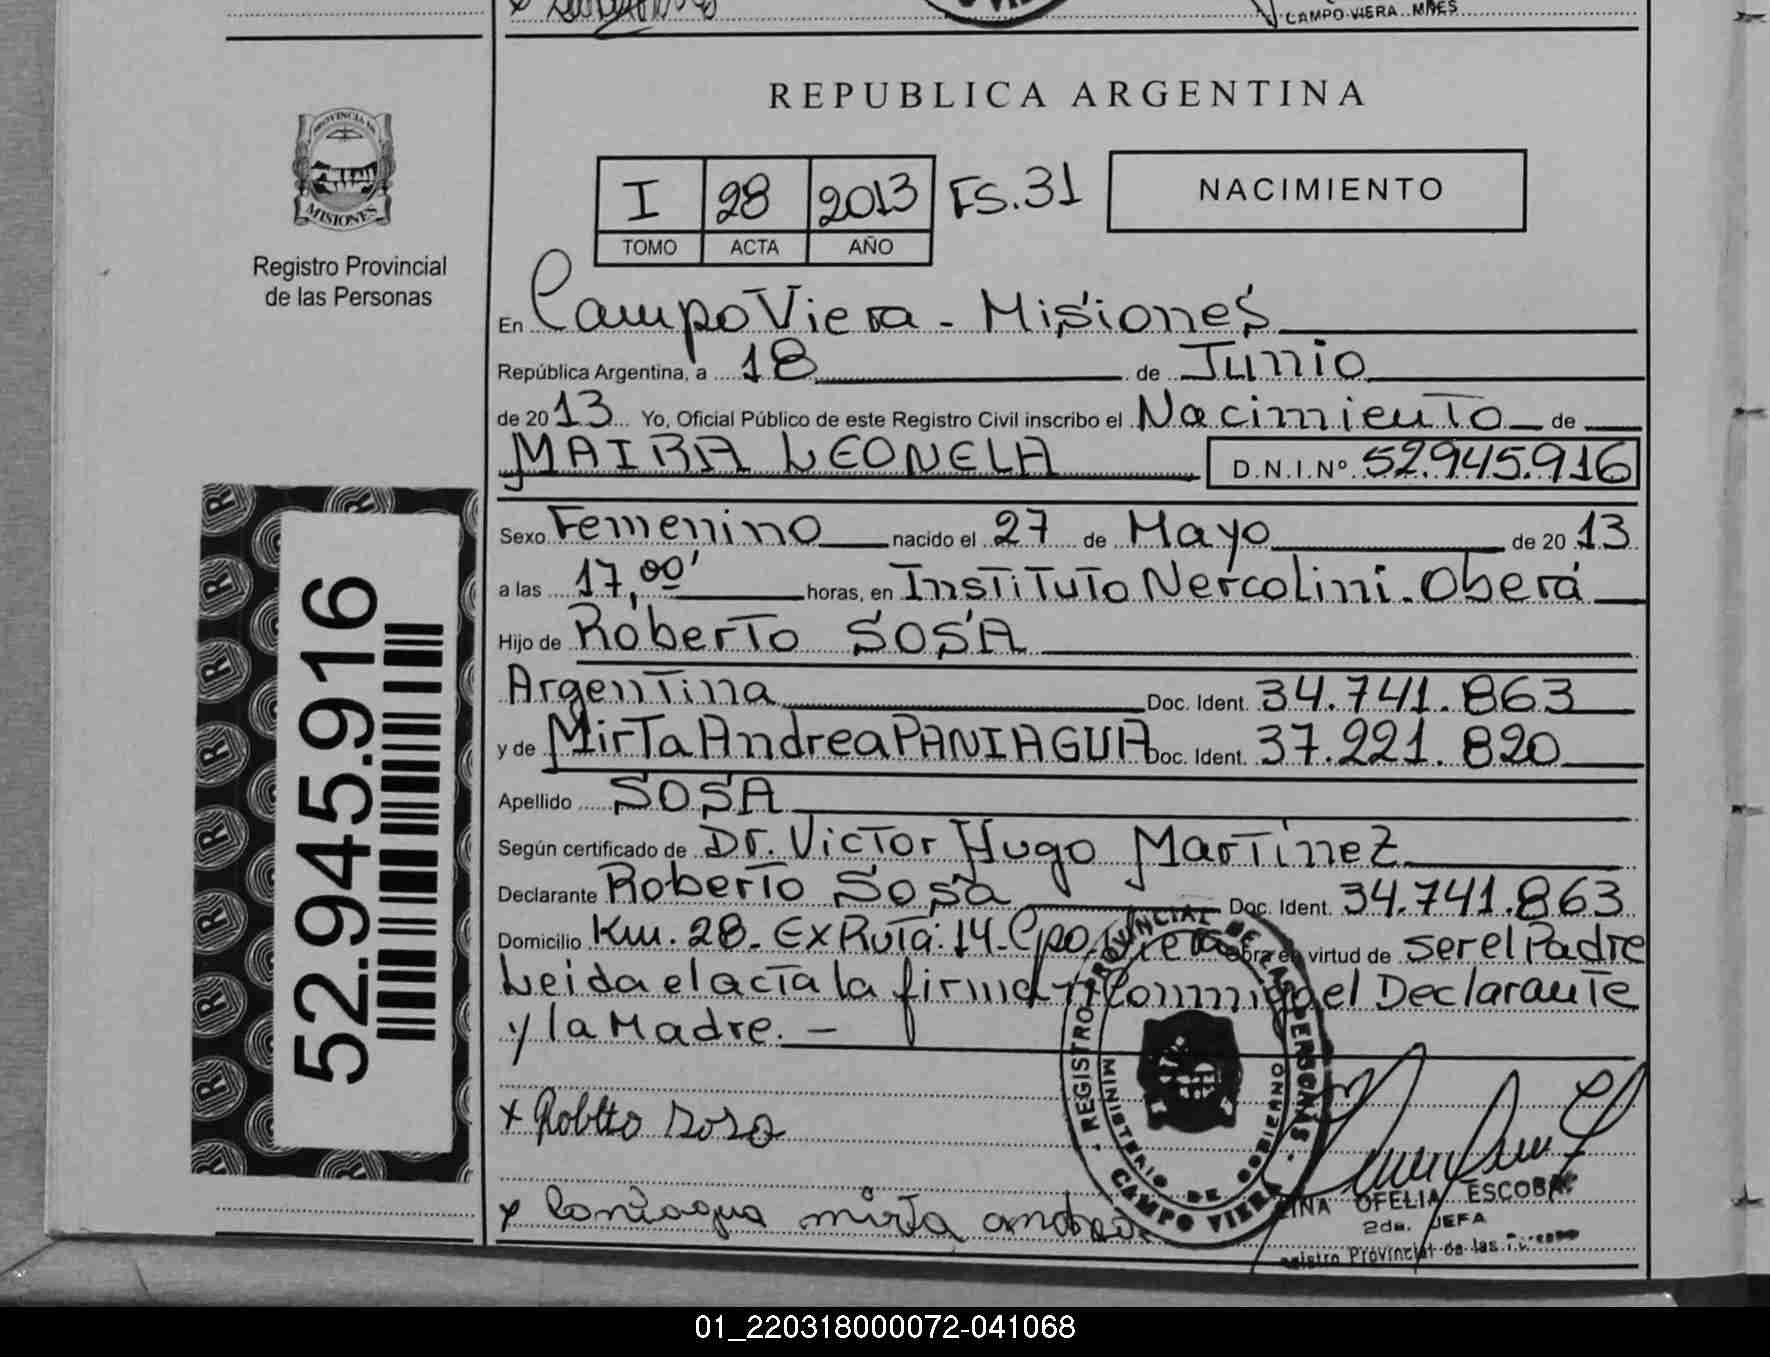 CAMPO VIERA - MNES
REPUBLICA ARGENTINA
PROVINCIA DE
MISIONES
Registro Provincial
de las Personas
I 28 2013 FS.31
TOMO ACTA AÑO
NACIMIENTO
En Campo Viera - Misiones
República Argentina, a 18 de Junio
de 2013 Yo, Oficial Público de este Registro Civil inscribo el Nacimiento de
MAIRA LEONELA D.N.I.Nº 52.945.916
Sexo Femenino nacido el 27 de Mayo de 2013
a las 17,00' horas, en Instituto Nercolini - Oberá
Hijo de Roberto SOSA
Argentina Doc. Ident. 34.741.863
y de Mirta Andrea PANIAGUA Doc. Ident. 37.221.820
Apellido SOSA
Según certificado de Dr. Victor Hugo Martinez
Declarante Roberto Sosa Doc. Ident. 34.741.863
Domicilio Km. 28. Ex Ruta: 14 - Cpo. Viera Obra en virtud de ser el Padre
Leida el acta la firman conmigo el Declarante
y la Madre. —
x Robtto Sosa
x Paniagua mirta andrea
52.945.916
REGISTRO PROVINCIAL DE LAS PERSONAS
MINISTERIO DE GOBIERNO
CAMPO VIERA
OFELIA ESCOBAR
2da. JEFA
Registro Provincial de las
01_220318000072-041068